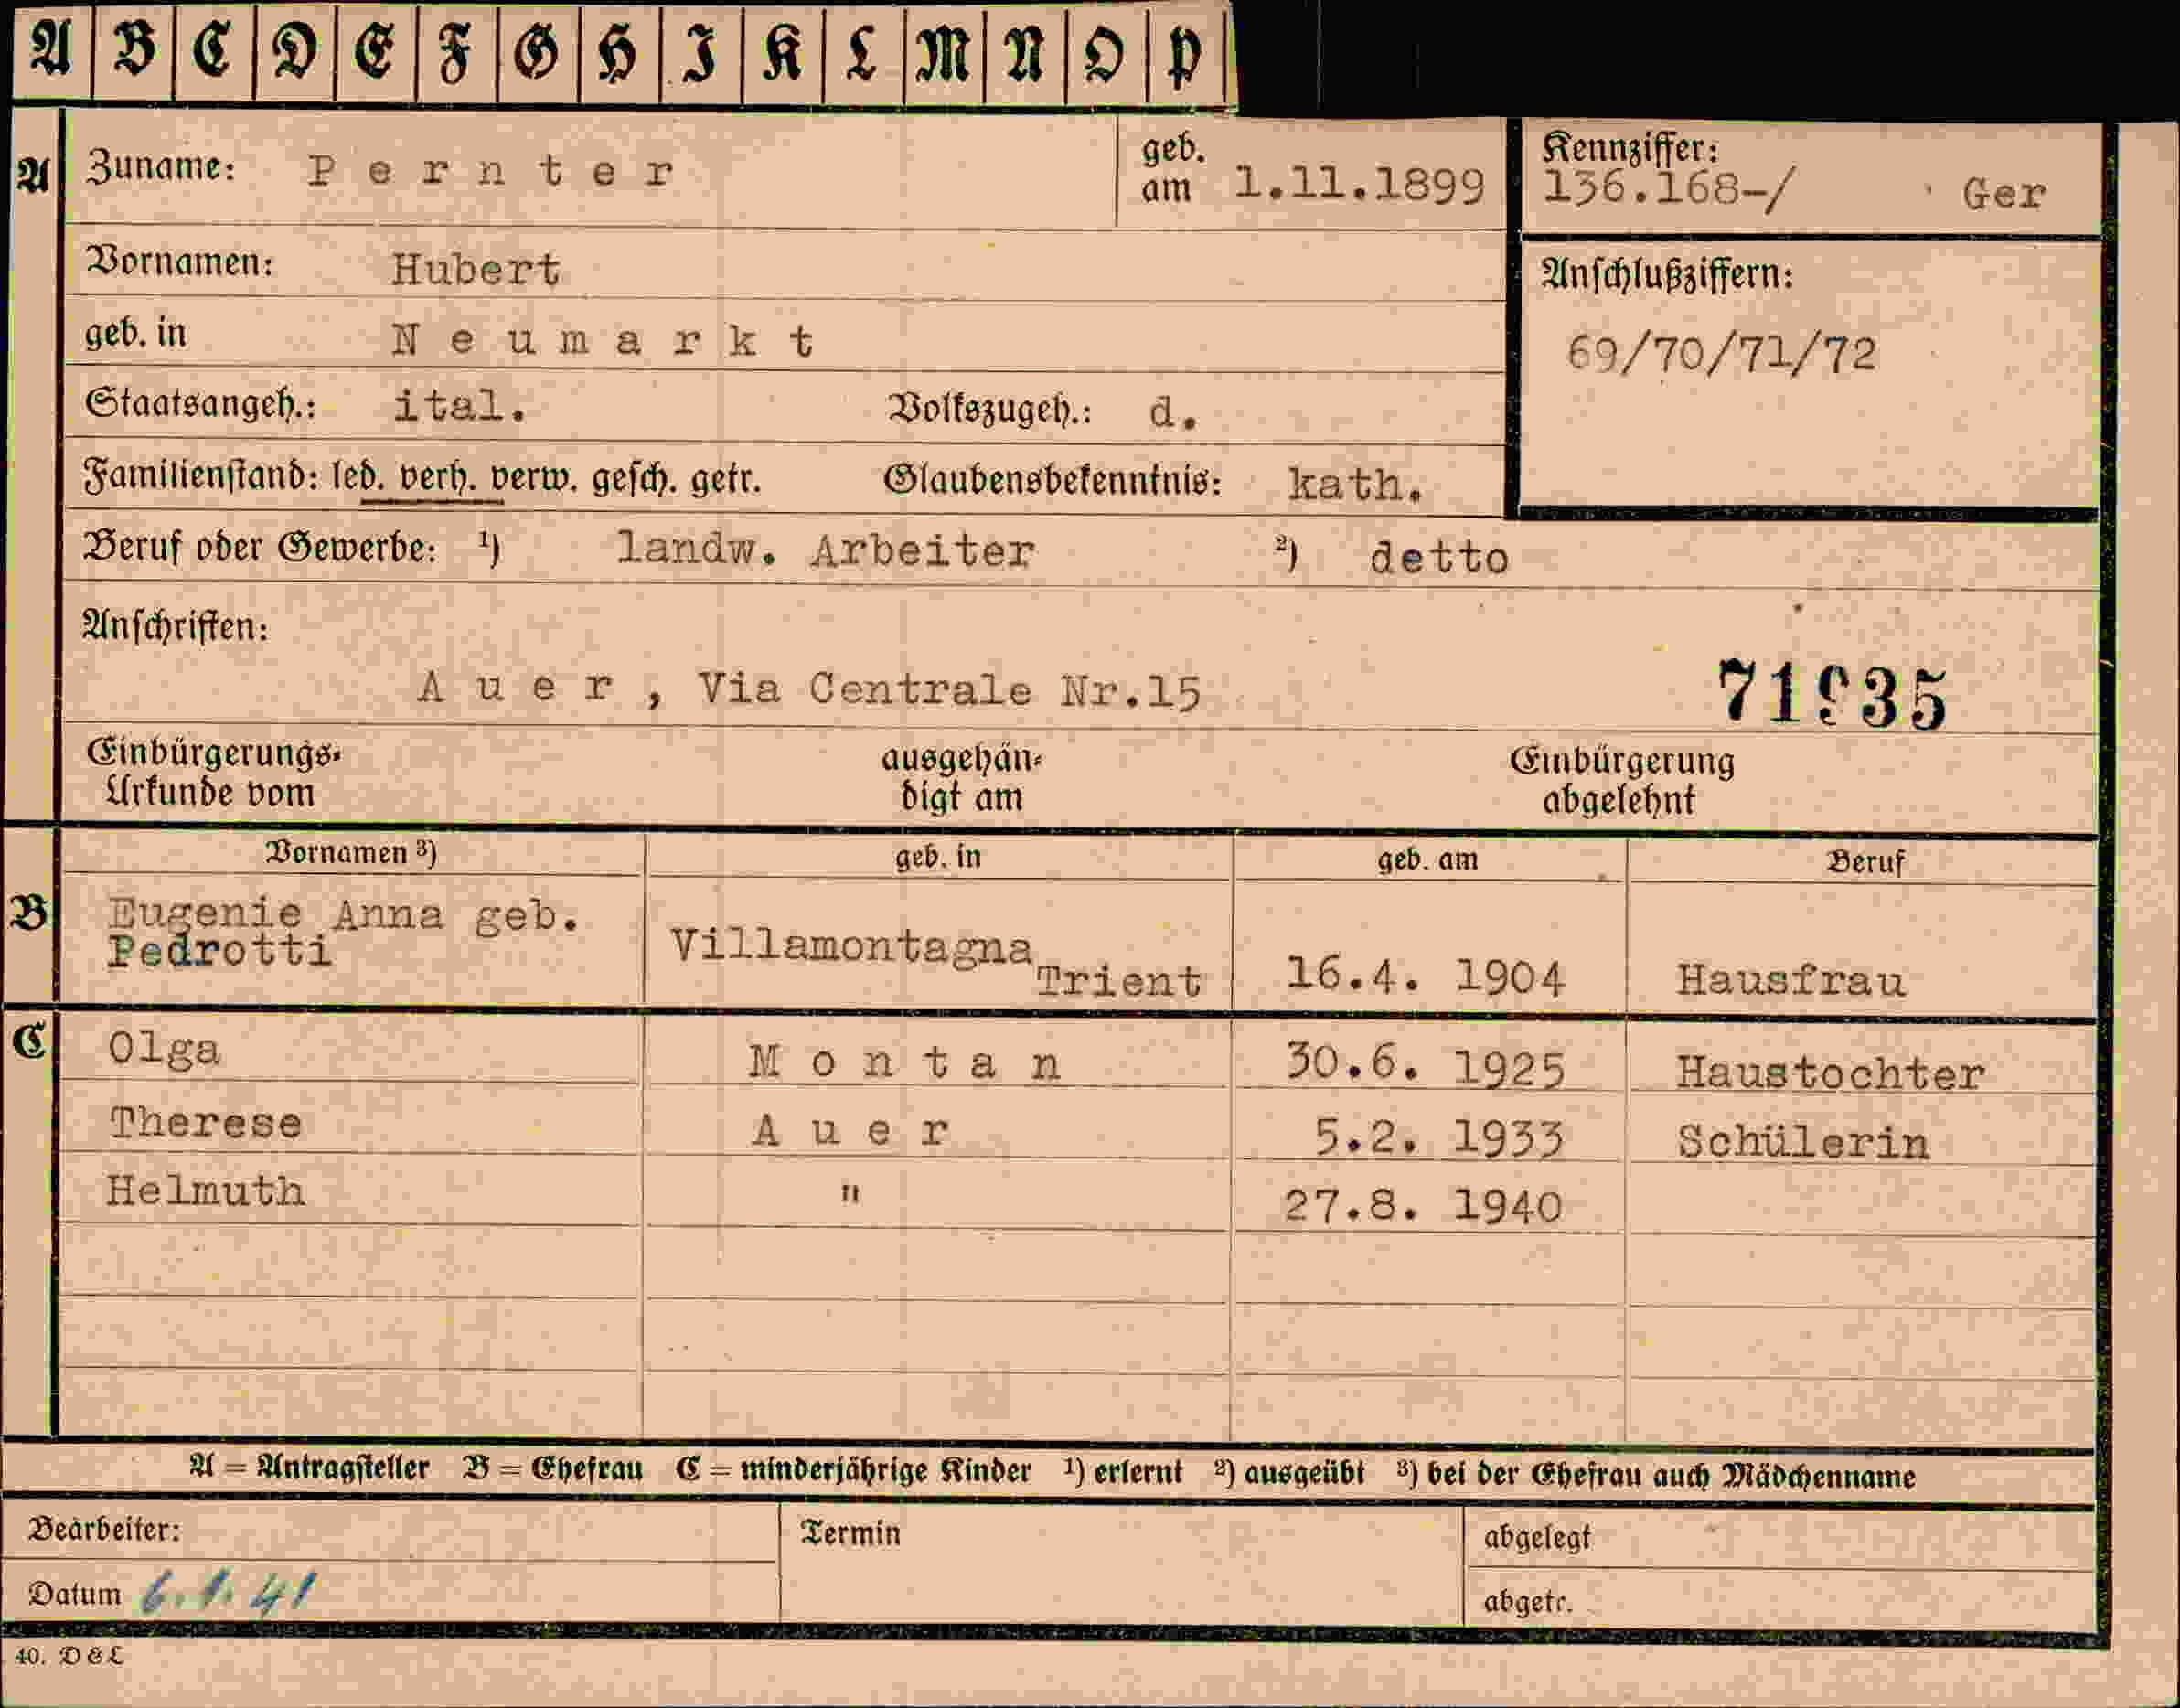 A B C D E F G H I K L M N O P
A Zuname: Pernter geb. am 1.11.1899 Kennziffer: 136.168-/ Ger
Vornamen: Hubert Anschlußziffern:
geb. in Neumarkt 69/70/71/72
Staatsangeh.: ital. Volkszugeh.: d.
Familienstand: led. verh. verw. gesch. getr. Glaubensbekenntnis: kath.
Beruf oder Gewerbe: ¹) landw. Arbeiter ²) detto
Anschriften:
Auer, Via Centrale Nr.15 71935
Einbürgerungs- ausgehän- Einbürgerung
Urkunde vom digt am abgelehnt
Vornamen ³) geb. in geb. am Beruf
B Eugenie Anna geb.
Pedrotti Villamontagna Trient 16.4. 1904 Hausfrau
C Olga Montan 30.6. 1925 Haustochter
Therese Auer 5.2. 1933 Schülerin
Helmuth " 27.8. 1940
A = Antragsteller B = Ehefrau C = minderjährige Kinder ¹) erlernt ²) ausgeübt ³) bei der Ehefrau auch Mädchenname
Bearbeiter: Termin abgelegt
Datum 6.1.41 abgetr.
40. D & L